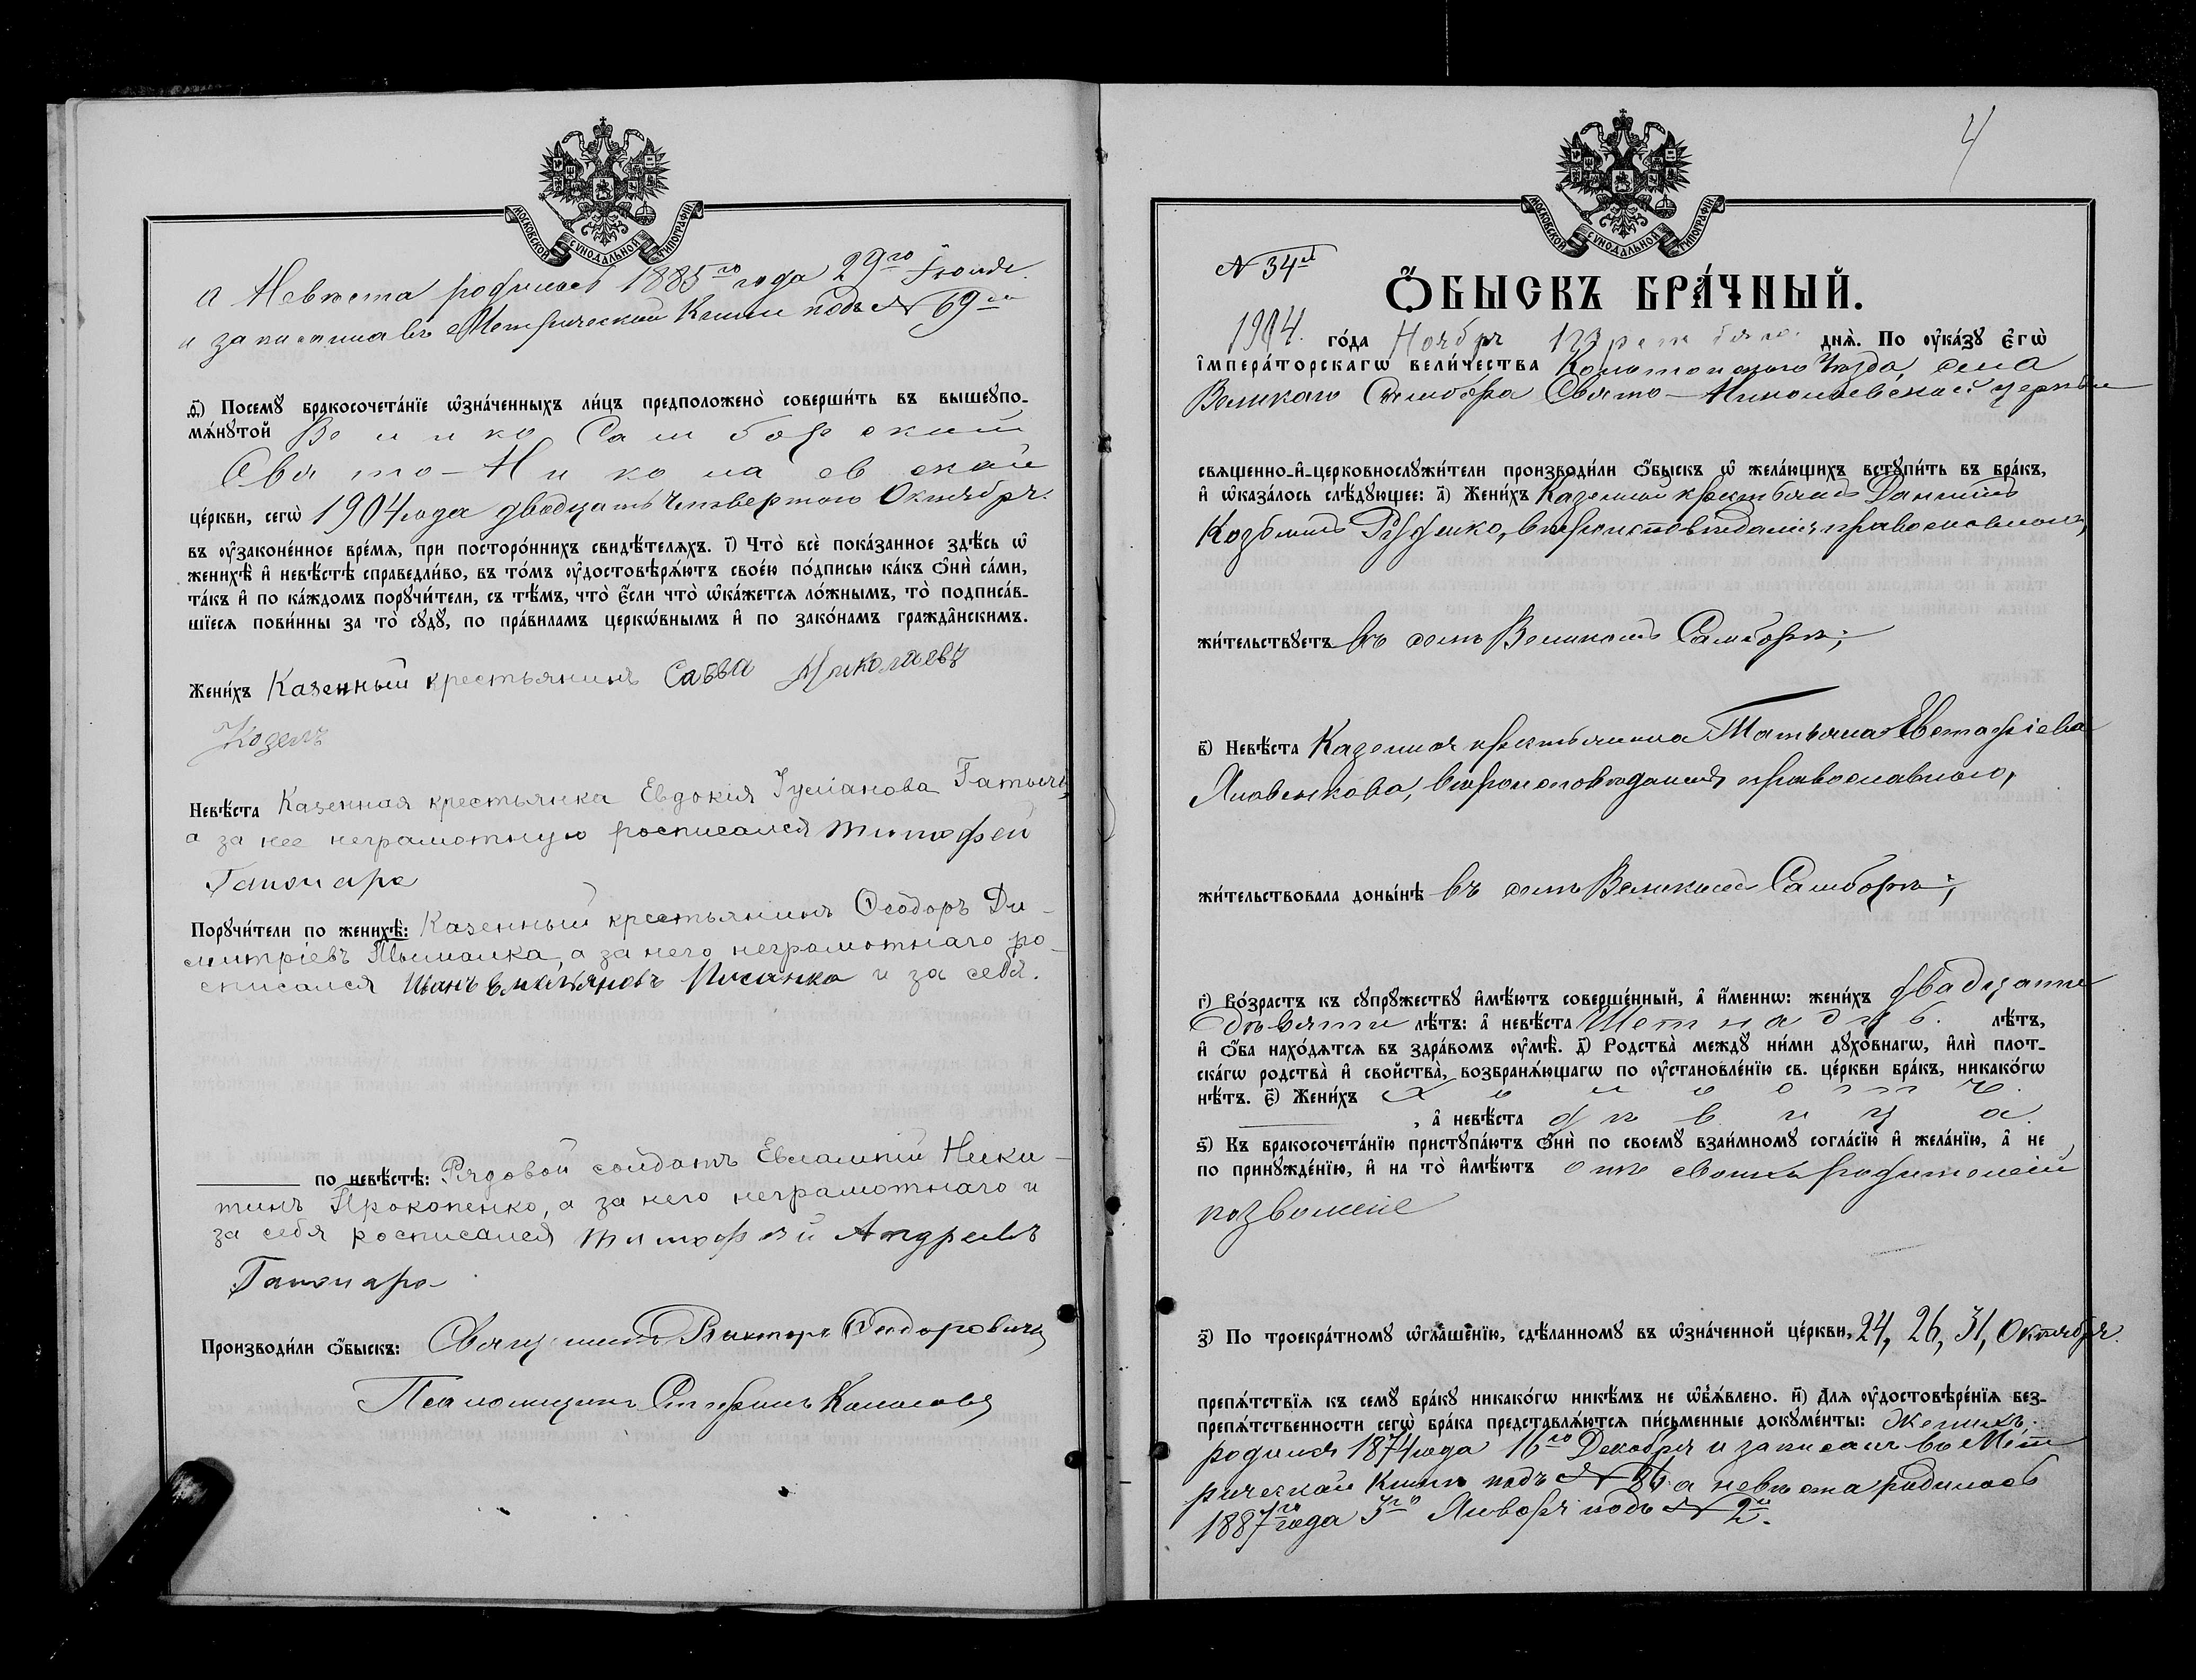 МОСКОВСКОЙ СѴНОДАЛЬНОЙ ТИПОГРАФІИ
а Невѣста родилась 1885го года 29го Іюля
и записана въ Метрической Книги подъ № 69м
ѳ҃) Посемꙋ бракосочета́нїе ѡ҆зна́ченныхъ ли́цъ предположено̀ соверши́ть въ вышеꙋпо-
мѧ́нꙋтой Велико Самборской
Свято-Николаевской
це́ркви, сегѡ̀ 1904 года двадцать четвертого Октября
въ ᲂу҆законе́нное вре́мѧ, при посторо́ннихъ свидѣ́телѧхъ. і҃) Что̀ всѐ пока́занное здѣ́сь ѡ҆
женихѣ̀ и҆ невѣ́стѣ справедли́во, въ то́мъ ᲂу҆достовѣрѧ́ютъ свое́ю по́дписью ка́къ ѻ҆нѝ са́ми,
та́къ и҆ по ка́ждомъ порꙋчи́тели, съ тѣ́мъ, что̀ є҆́сли что̀ ѡ҆ка́жетсѧ ло́жнымъ, то̀ подписа́в-
шїесѧ пови́нны за то̀ сꙋдꙋ̀, по пра́виламъ церкѡ́внымъ и҆ по зако́намъ гражда̑нскимъ.
Жени́хъ Казенный крестьянинъ Савва Николаевъ
Козелъ
Невѣ́ста Казенная крестьянка Евдокія Іуліанова
а за нее неграмотную росписался Тимофей
Гапонаро
Порꙋчи́тели по женихѣ̀: Казенный крестьянинъ Ѳеодоръ Ди-
митріевъ а за него неграмотнаго ро-
списался Иванъ Емельяновъ Писанка и за себя.
по невѣ́стѣ: Рядовой солдатъ Евлампій Ники-
тинъ Прокопенко, а за него неграмотнаго и
за себя росписался Тимофей Андреевъ
Гапонаро
Производи́ли ѻ҆́быскъ: Священникъ Викторъ Ѳедоровичъ
Псаломщикъ Стефанъ
4
МОСКОВСКОЙ СѴНОДАЛЬНОЙ ТИПОГРАФІИ
№ 34й
Ѻ҆́БЫСКЪ БРА́ЧНЫЙ.
1904. го́да Ноября днѧ̀. По ᲂу҆ка́зꙋ є҆гѡ̀
і҆мпера́торскагѡ вели́чества Конотопского Уѣзда, села
Великого Самбора Свято-Николаевской церкви
свѧщенно-и҆-церковнослꙋжи́тели производи́ли ѻ҆́быскъ ѡ҆ жела́ющихъ встꙋпи́ть въ бра́къ,
и҆ ѡ҆каза́лось слѣ́дꙋющее: а҃) Жени́хъ Казенный крестьянинъ Даніилъ
Козьминъ Руденко, вѣроисповѣданія православного,
жи́тельствꙋетъ въ селѣ Великомъ Самборѣ;
в҃) Невѣ́ста Казенная крестьянка Татьяна Евстафіева
Яловенкова, вѣроисповѣданія православного,
жи́тельствовала доны́нѣ въ селѣ Великомъ Самборѣ;
г҃) Во́зрастъ къ сꙋпрꙋ́жествꙋ и҆мѣ́ютъ соверше́нный, а҆ и҆́меннѡ: жени́хъ двадцати
девяти лѣ́тъ: а҆ невѣ́ста лѣ́тъ,
и҆ ѻ҆́ба нахо́дѧтсѧ въ здра́вомъ ᲂу҆мѣ̀. д҃) Родства̀ междꙋ̀ ни́ми дꙋхо́внагѡ, и҆лѝ плот-
ска́гѡ родства̀ и҆ свойства̀, возбранѧ́ющагѡ по ᲂу҆становле́нїю св. це́ркви бра́къ, никако́гѡ
нѣ́тъ. є҃) Жени́хъ холостъ
, а҆ невѣ́ста дѣвица
ѕ҃) Къ бракосочета́нїю пристꙋпа́ютъ ѻ҆нѝ по своемꙋ̀ взаи́мномꙋ согла́сїю и҆ жела́нїю, а҆ не
по принꙋжде́нїю, и҆ на то̀ и҆мѣ́ютъ отъ своихъ родителей
позволеніе
з҃) По троекра́тномꙋ ѡ҆глаше́нїю, сдѣ́ланномꙋ въ ѡ҆зна́ченной це́ркви, 24, 26, 31, Октября.
препѧ́тствїѧ къ семꙋ̀ бра́кꙋ никако́гѡ никѣ́мъ не ѡ҆б̾ѧ́влено. и҃) Для ᲂу҆достовѣре́нїѧ без-
препѧ́тственности сегѡ̀ бра́ка представлѧ́ютсѧ пи́сьменные докꙋме́нты: Женихъ
родился 1874 года 16го Декабря и записанъ въ Мет
рической Книгѣ подъ № 86 а невѣста родилась
1887го года 3го Января подъ № 2м.